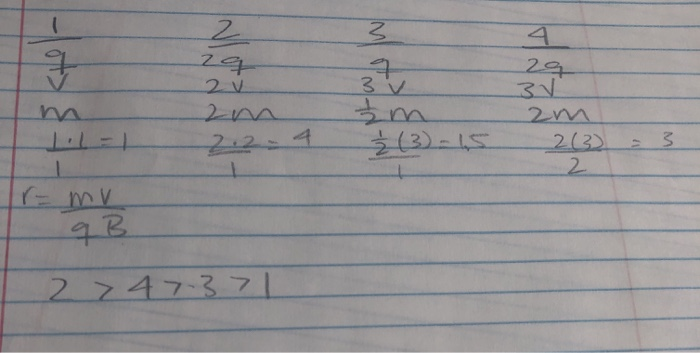 1 2 3 4
q 2q q 2q
v 2v 3v 3v
m 2m ½m 2m
1·1/1 = 1 2·2/1 = 4 ½(3)/1 = 1.5 2(3)/2 = 3
r = mv/qB
2 > 4 > 3 > 1